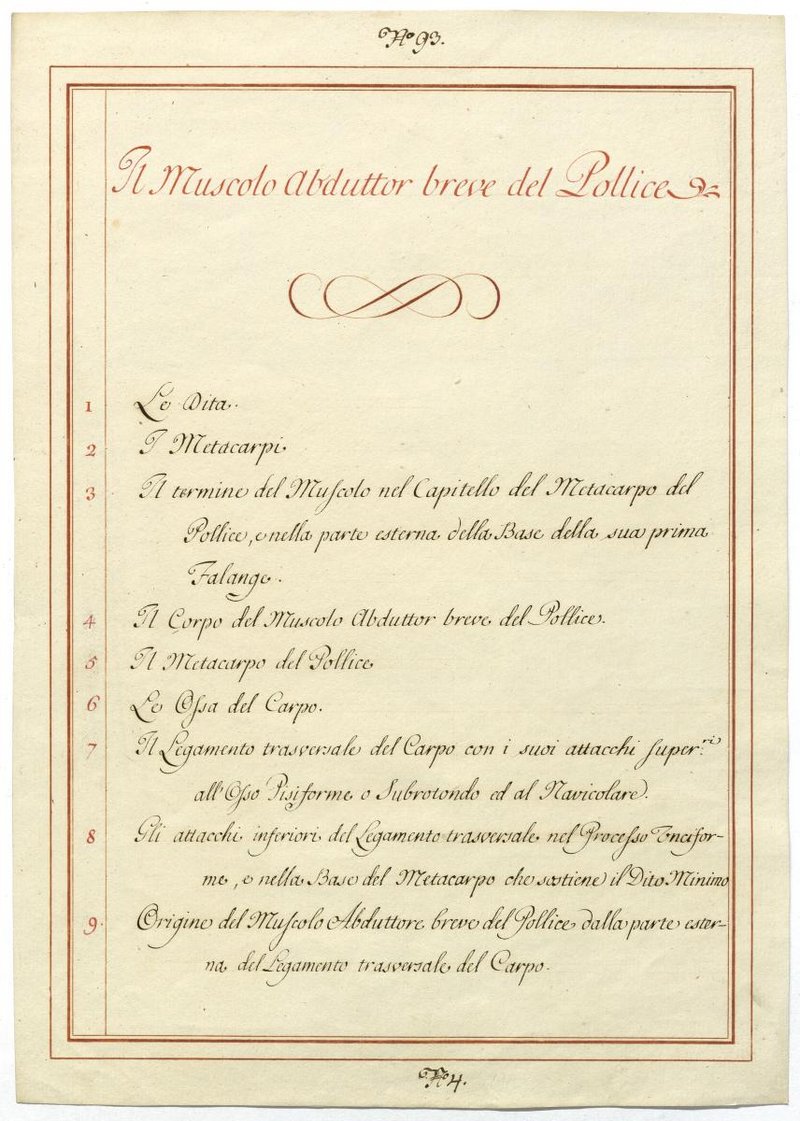 No 93.
Il Muscolo Abduttor breve del Pollice
1 Le Dita.
2 I Metacarpi.
3 Il termine del Muſcolo nel Capitello del Metacarpo del
Pollice, e nella parte esterna della Base della sua prima
Falange.
4 Il Corpo del Muscolo Abduttor breve del Pollice.
5 Il Metacarpo del Pollice
6 Le Oſsa del Carpo.
7 Il Legamento trasversale del Carpo con i suoi attacchi ſuper.ri
all'Oſso Pisiforme o Subrotondo ed al Navicolare.
8 Gli attacchi inferiori del Legamento trasversale nel Proceſso Uncifor-
me, e nella Base del Metacarpo che sostiene il Dito Minimo
9. Origine del Muſcolo Abduttore breve del Pollice dalla parte ester-
na del Legamento trasversale del Carpo.
No 4.